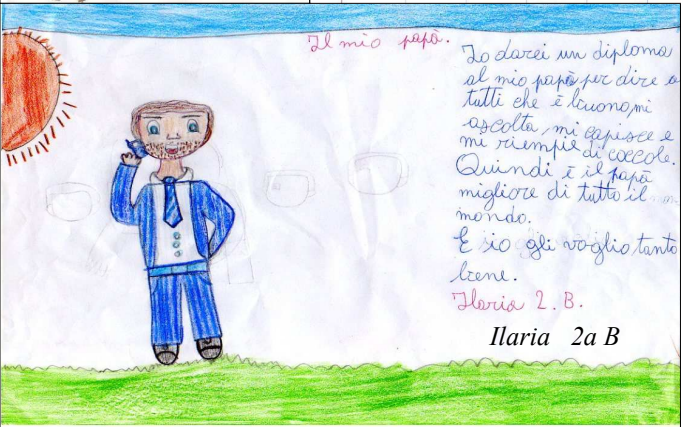 Il mio papà.
Io darei un diploma
al mio papà per dire a
tutti che è buono, mi
ascolta, mi capisce e
mi riempie di coccole.
Quindi è il papà
migliore di tutto il
mondo.
E io gli voglio tanto
bene.
Ilaria 2. B.
Ilaria 2a B